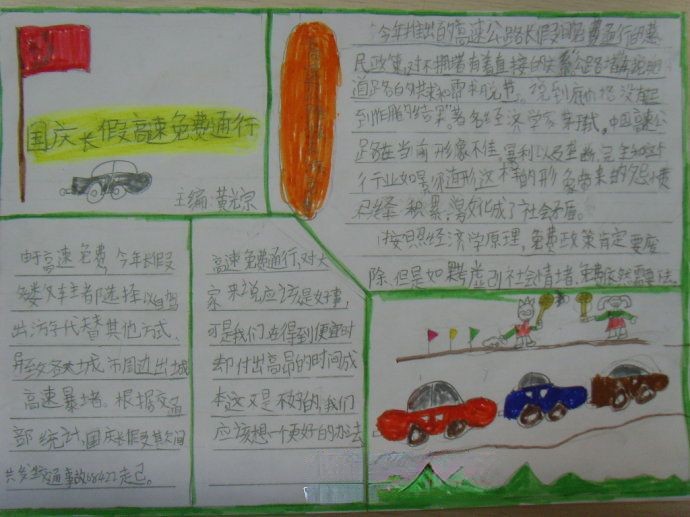 国庆长假高速免费通行
主编:黄综
今年推出的高速公路长假日免费通行的惠
民政策,对不拥堵有着直接的关系公路堵再现
道路的供求和需求脱节。说到底价格没有
到作用的结果"著名经济学家茅于轼。中国高速公
路在当前形象不佳,暴利以及垄断,完全
行行业如是你这形这样的形象带来的怨愤
已经积累,演化成了社会矛盾。
按照经济学原理,免费政策肯定要废
除,但是如果考虑到社会情绪,免费依然需要
由于高速免费,今年长假
多数车主都选择以自驾
出游代替其他方式、
导致各大城市周边出城
高速暴堵。根据交通
部统计,国庆长假期间
共发生交通事故68422起。
高速免费通行,对大
家来说应该是好事,
可是我们在得到便宜时
却付出高昂的时间成
本这又是不够的,我们
应该想一个更好的办法